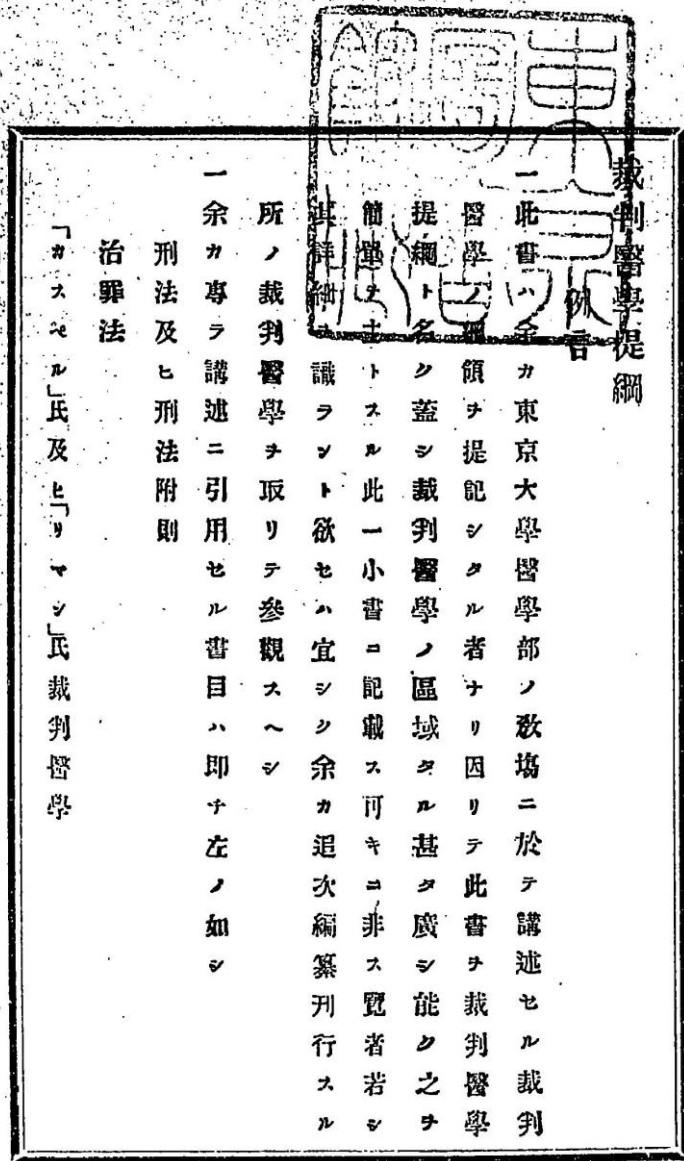 裁判醫學提綱
例言
一此書ハ余カ東京大學醫學部ノ敎塲ニ於テ講述セル裁判
醫學ノ綱領ヲ提記シタル者ナリ因リテ此書ヲ裁判醫學
提綱ト名ク蓋シ裁判醫學ノ區域タル甚タ廣シ能ク之ヲ
簡單ヲ主トスル此一小書ニ記載ス可キニ非ス覽者若シ
其詳細ヲ識ラント欲セハ宜シク余カ追次編纂刊行スル
所ノ裁判醫學ヲ取リテ參觀スヘシ
一余カ專ラ講述ニ引用セル書目ハ即チ左ノ如シ
刑法及ヒ刑法附則
治罪法
「カスペル」氏及ヒ「リマン」氏裁判醫學